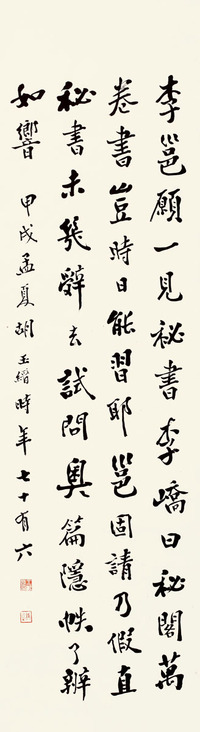 李邕願一見祕書李嶠曰祕閣萬
卷書豈時日能習耶邕固請乃假直
祕書未幾辭去試問奧篇隱帙了辨
如響 甲戌孟夏胡玉縉時年七十有六